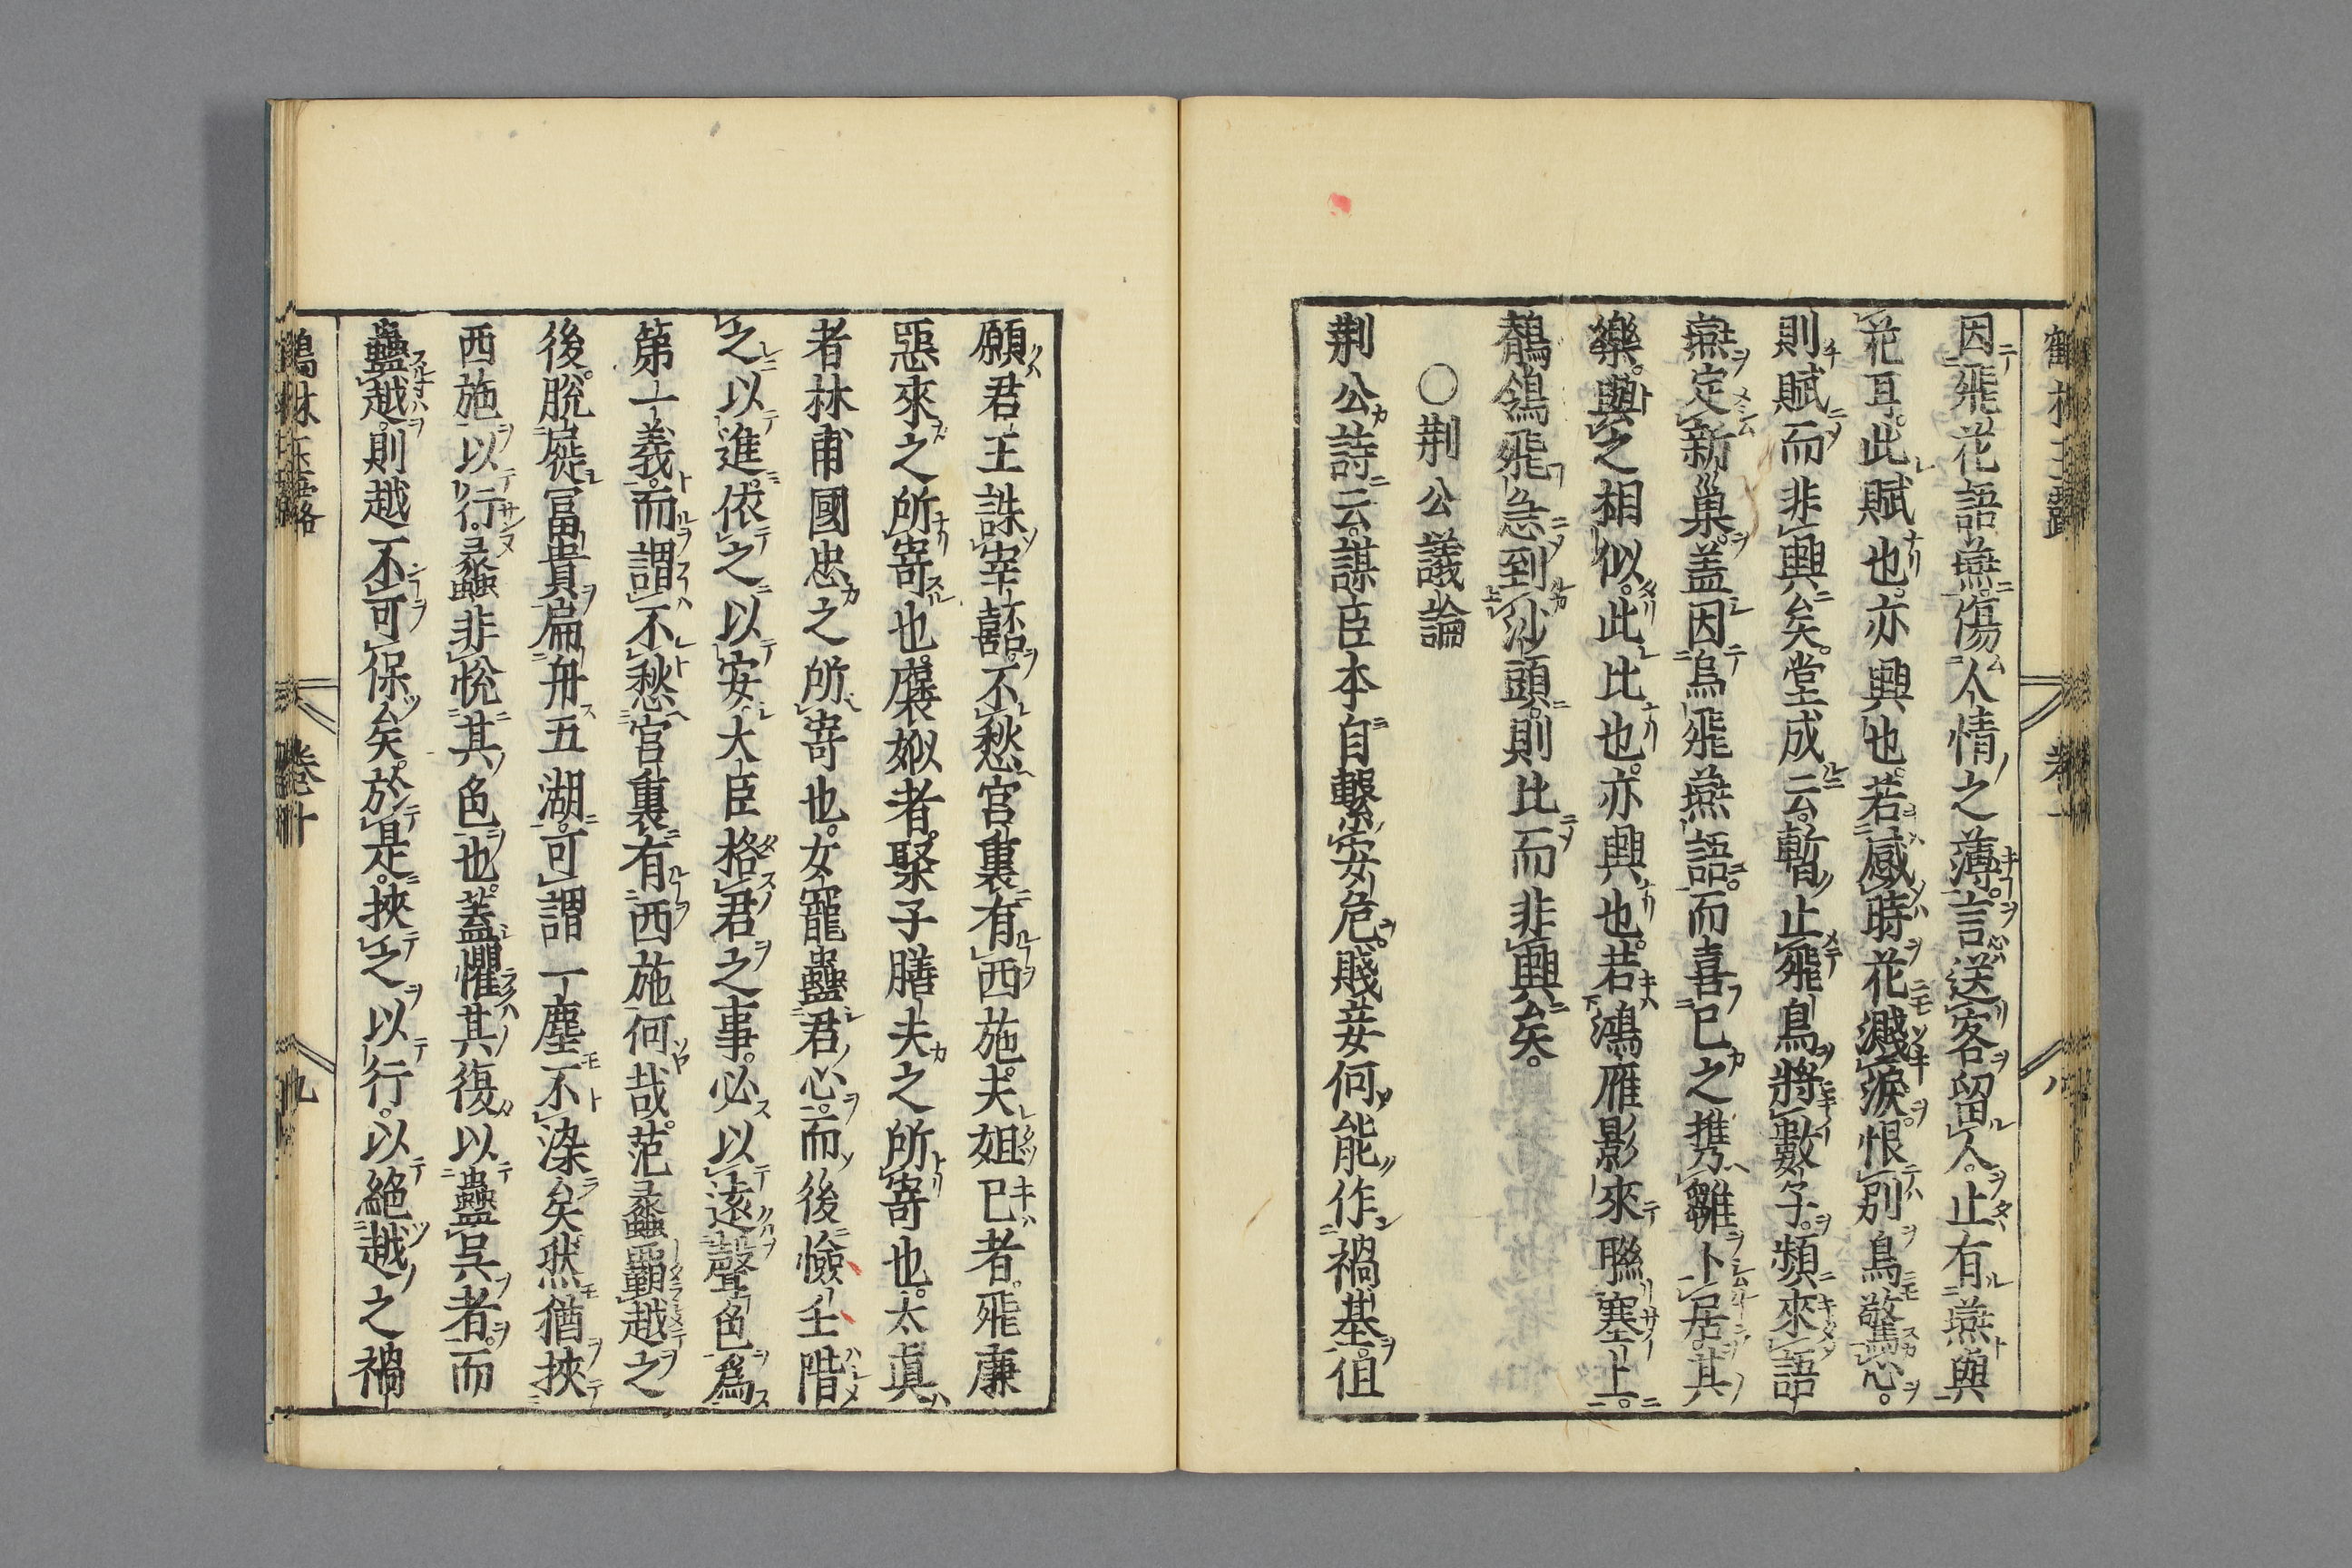 因飛花語燕傷人情之薄言送客留人止有燕與
花耳。此賦也。亦興也。若感時花濺淚。恨別鳥驚心。
則賦而非興矣。堂成云。暫止飛烏將數子。頻來語
燕定新巢。蓋因烏飛燕語。而喜己之携雛卜居。其
樂。與之相似。此比也。亦興也。若鴻雁影來聯塞上。
鶺鴒飛急到沙頭。則比而非興矣。
〇荆公議論
荆公詩云。謀臣本自繫安危。賤妾何能作禍基。但
願君王誅宰嚭。不愁宮裏有西施。夫妲己者。飛廉
惡來之所寄也。褒姒者。聚子膳夫之所寄也。太真
者林甫國忠之所寄也。女寵蠱君心。而後憸壬階
之以進。依之以安。大臣格君之事。必以遠聲色爲
第一義。而謂不愁宮裏有西施何哉。范蠡霸越之
後。脫屣富貴扁舟五湖。可謂一塵不染矣然猶挾
西施以行。蠡非悅其色也。蓋懼其復以蠱吳者。而
蠱越。則越不可保矣。於是。挾之以行。以絕越之禍
鶴林玉露 卷十 九